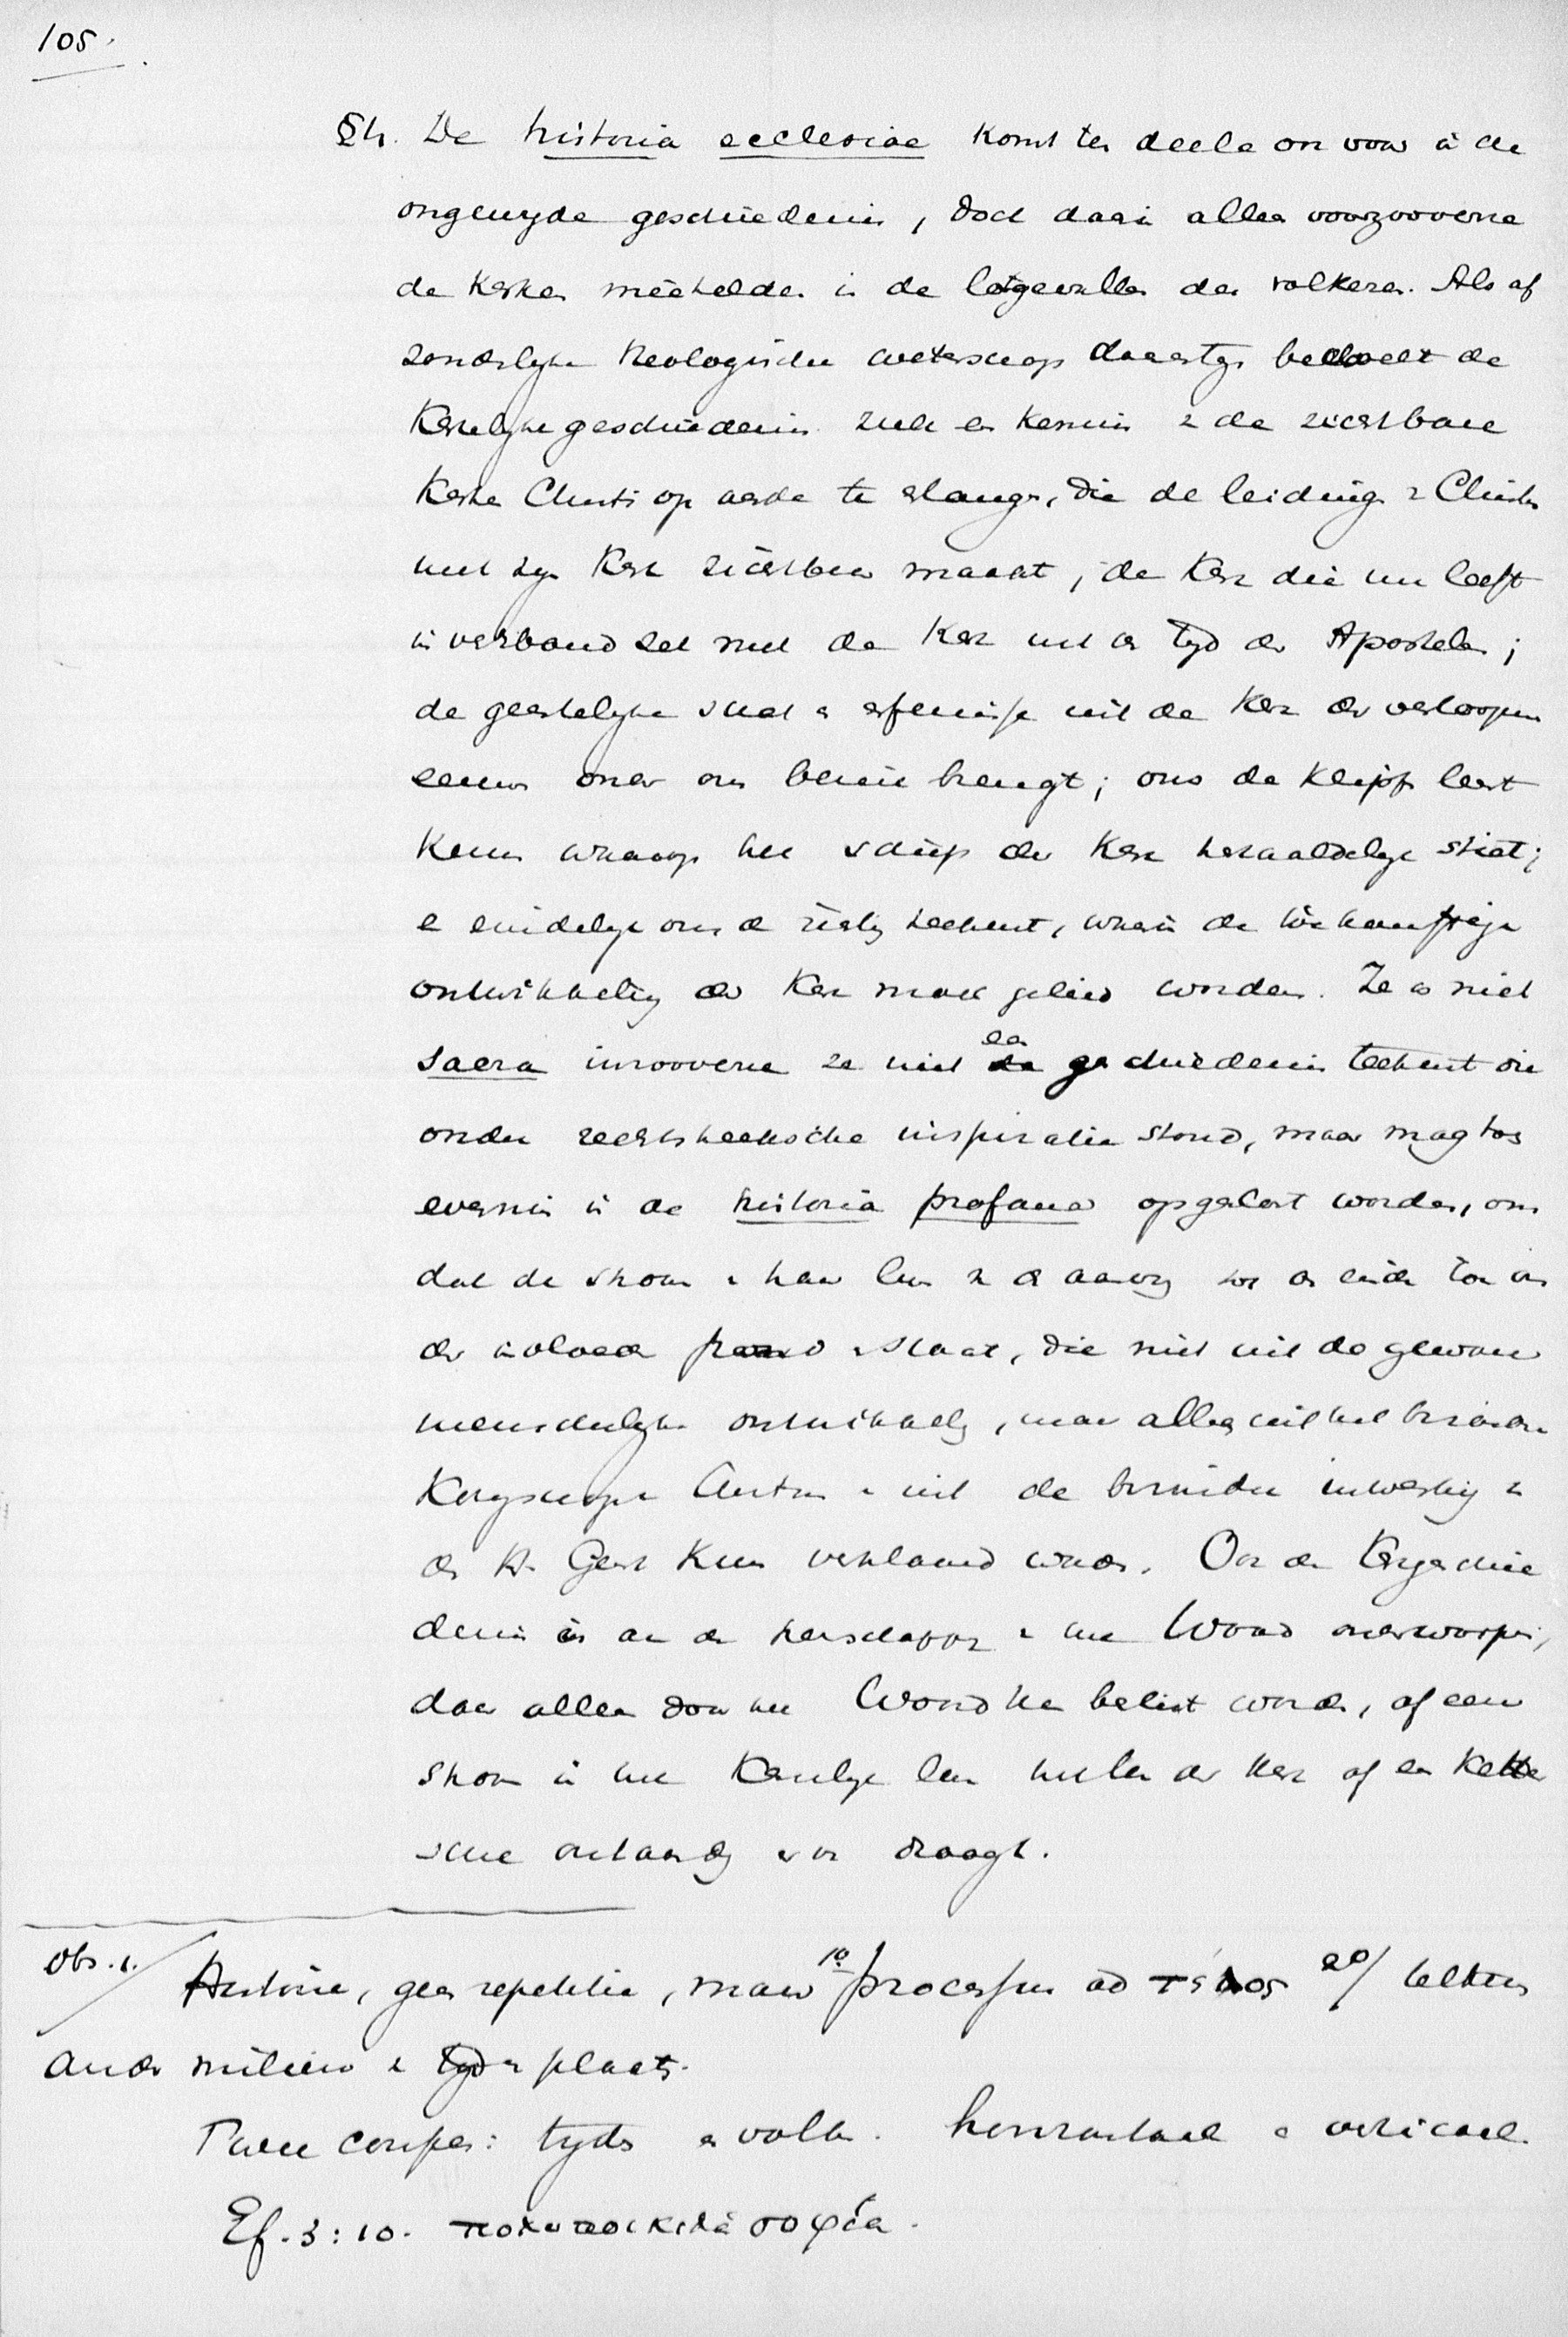 105.
§4. De historia ecclesiae komt ten deele ook voor in de
ongewyde geschiedenis, doch daarin alleen voorzooverre
de kerken meetelden in de lotgevallen der volkeren. Als af
zonderlyke theologische wetenschap daarentegen bedoelt de
Kerkelyke geschiedenis zulk een kennis v de zichtbare
Kerke Christi op aarde te erlangen, die de leiding v Christus
met zyn Kerk zichtbaar maakt; de Kerk die nu leeft
in verband zet met de Kerk uit den tyd der Apostelen;
de geestelyke schat en erfenisse uit de Kerk der verloopen
eeuwen onder ons bereik brengt; ons de klippen leert
kennen waarop het schip der Kerk herhaaldelyk stiet;
en eindelyk ons de richting teekent, waarin de toekomstige
ontwikkeling der Kerk moet geleid worden. Ze is niet
sacra inzooverre ze niet een geschiedenis teekent die
onder rechtstreeksche inspiratie stond, maar mag toch
evenmin in de historia profana opgelost worden, om
dat de stroom v haar leven v den aanvang tot den einde toe onder
den invloed staat, die niet uit de gewone
menschelyke ontwikkeling, maar alleen uit het bizondere
Koningschap Christus en uit de bizondere inwerking v
den H. Geest kan verklaard worden. Ook de Kerkgeschie
denis is aan de heerschappy v het Woord onderworpen,
daar alleen door het Woord kan beslist worden, of een
stroom in het Kerkelyk leven het leven der Kerk of een ketter
sche ontaarding er in draagt.
Obs. 1. Historie, geen repetitie, maar 1o. processus ad τέλος 2o/ telkens
ander milieu v tyd en plaats.
Twee coupes: tyds en volken. horizontaal en verticaal.
Ef. 3:10. πολυποικιλα σοφία.